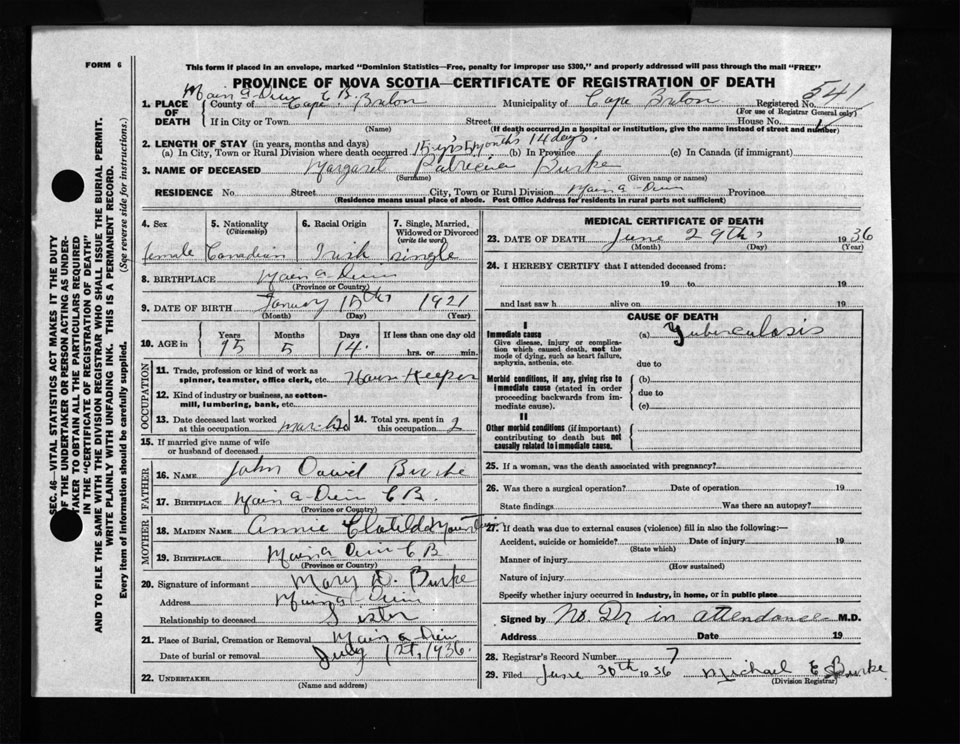 FORM 6
This form if placed in an envelope, marked "Dominion Statistics—Free, penalty for improper use $300," and properly addressed will pass through the mail "FREE"
PROVINCE OF NOVA SCOTIA—CERTIFICATE OF REGISTRATION OF DEATH
SEC. 46—VITAL STATISTICS ACT MAKES IT THE DUTY
OF THE UNDERTAKER OR PERSON ACTING AS UNDER-
TAKER TO OBTAIN ALL THE PARTICULARS REQUIRED
IN THE "CERTIFICATE OF REGISTRATION OF DEATH"
AND TO FILE THE SAME WITH THE DIVISION REGISTRAR WHO SHALL ISSUE THE BURIAL PERMIT.
WRITE PLAINLY WITH UNFADING INK. THIS IS A PERMANENT RECORD.
Every item of information should be carefully supplied. (See reverse side for instructions.)
Main a Dieu C. B. 541
1. PLACE OF DEATH
County of Cape Breton Municipality of Cape Breton Registered No.
(For use of Registrar General only)
If in City or Town Street House No.
(Name) (If death occurred in a hospital or institution, give the name instead of street and number)
2. LENGTH OF STAY (in years, months and days)
(a) In City, Town or Rural Division where death occurred 15 yrs 5 months 14 days. (b) In Province (c) In Canada (if immigrant)
3. NAME OF DECEASED Margaret Patricia Burke
(Surname) (Given name or names)
RESIDENCE No. Street City, Town or Rural Division Main a-Dieu Province
(Residence means usual place of abode. Post Office Address for residents in rural parts not sufficient)
4. Sex 5. Nationality (Citizenship) 6. Racial Origin 7. Single, Married, Widowed or Divorced (write the word)
female Canadian Irish Single
8. BIRTHPLACE Main a Dieu
(Province or Country)
9. DATE OF BIRTH January 15th 1921
(Month) (Day) (Year)
10. AGE in Years Months Days If less than one day old
15 5 14. hrs. or min.
OCCUPATION
11. Trade, profession or kind of work as spinner, teamster, office clerk, etc. House Keeper
12. Kind of industry or business, as cotton-mill, lumbering, bank, etc.
13. Date deceased last worked at this occupation 14. Total yrs. spent in this occupation 2
15. If married give name of wife or husband of deceased
FATHER
16. NAME John David Burke
17. BIRTHPLACE Main a-Dieu C B.
(Province or Country)
MOTHER
18. MAIDEN NAME Annie Clotilda
19. BIRTHPLACE Main a Dieu C. B
(Province or Country)
20. Signature of informant Mary D. Burke
Address Main a Dieu
Relationship to deceased Sister
21. Place of Burial, Cremation or Removal Main a Dieu
Date of burial or removal July 1st, 1936.
22. UNDERTAKER
(Name and address)
MEDICAL CERTIFICATE OF DEATH
23. DATE OF DEATH June 29th 1936
(Month) (Day) (Year)
24. I HEREBY CERTIFY that I attended deceased from:
19 to 19
and last saw h alive on 19
CAUSE OF DEATH
I
Immediate cause (a) Tuberculosis
Give disease, injury or complication which caused death, not the mode of dying, such as heart failure, asphyxia, asthenia, etc.
due to
Morbid conditions, if any, giving rise to immediate cause (stated in order proceeding backwards from immediate cause).
(b)
due to
(c)
II
Other morbid conditions (if important) contributing to death but not causally related to immediate cause.
25. If a woman, was the death associated with pregnancy?
26. Was there a surgical operation? Date of operation 19
State findings Was there an autopsy?
27. If death was due to external causes (violence) fill in also the following:—
Accident, suicide or homicide? Date of injury 19
(State which)
Manner of injury
(How sustained)
Nature of injury
Specify whether injury occurred in industry, in home, or in public place
Signed by No. Dr in attendance M.D.
Address Date 19
28. Registrar's Record Number 7
29. Filed June 30th 1936 Michael E Burke
(Division Registrar)